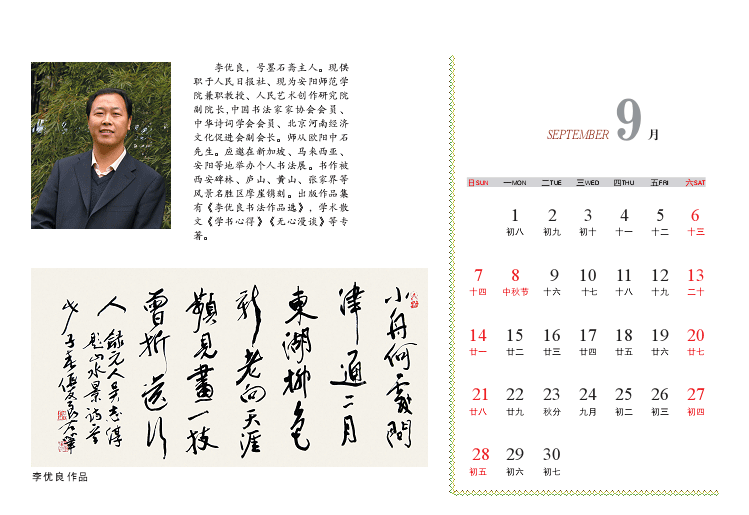 李优良，号墨石斋主人。现供
职于人民日报社、现为安阳师范学
院兼职教授、人民艺术创作研究院
副院长,中国书法家家协会会员、
中华诗词学会会员、北京河南经济
文化促进会副会长。师从欧阳中石
先生。应邀在新加坡、马来西亚、
安阳等地举办个人书法展。书作被
西安碑林、庐山、黄山、张家界等
风景名胜区摩崖镌刻。出版作品集
有《李优良书法作品选》，学术散
文《学书心得》《无心漫谈》等专
著。
小舟何處問
津通二月
東湖柳色
新老向天涯
頻見畫一枝
曾折送行
人
錄元人吳志淳
題山水景詩
戊子春優良
李优良作品
SEPTEMBER 9 月
日SUN 一MON 二TUE 三WED 四THU 五FRI 六SAT
1 2 3 4 5 6
初八 初九 初十 十一 十二 十三
7 8 9 10 11 12 13
十四 中秋节 十六 十七 十八 十九 二十
14 15 16 17 18 19 20
廿一 廿二 廿三 廿四 廿五 廿六 廿七
21 22 23 24 25 26 27
廿八 廿九 秋分 九月 初二 初三 初四
28 29 30
初五 初六 初七